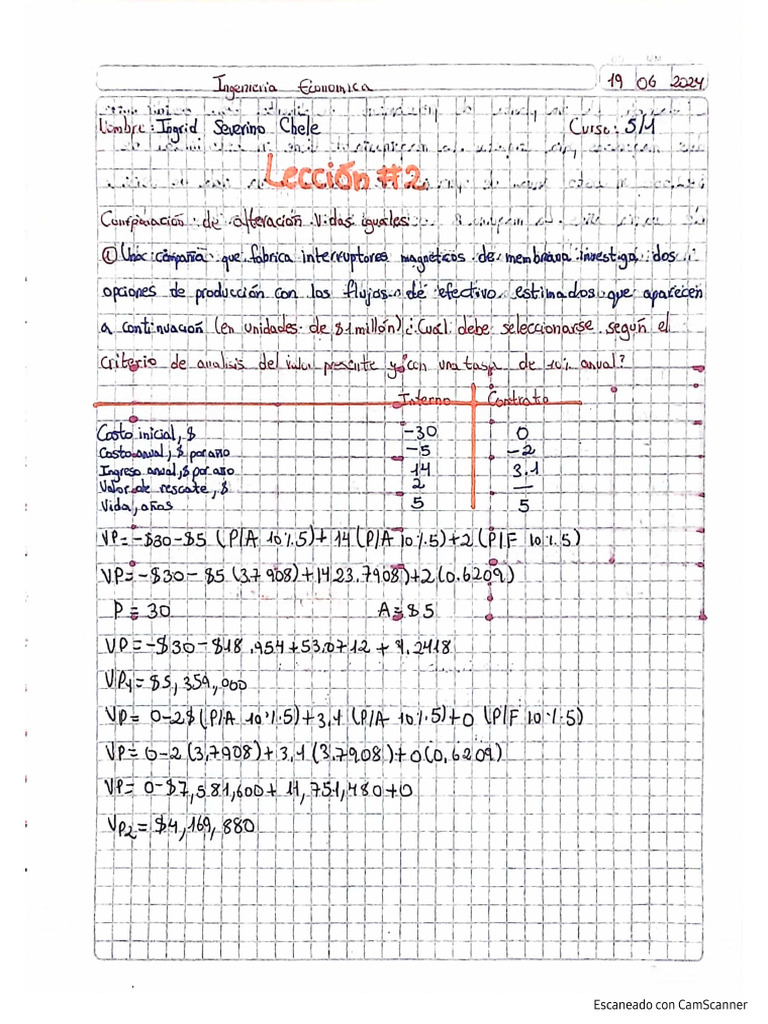 Ingenieria Economica
19 06 2024
Nombre: Ingrid Severino Chele Curso: 5/1
Lección #2
Comparación de alteración vidas iguales:
① Una compañia que fabrica interruptores magnéticos de membrana investiga dos
opciones de producción con los flujos de efectivo estimados que aparecen
a continuación (en unidades de $1 millón) ¿Cuál debe seleccionarse según el
criterio de analisis del valor presente y con una tasa de 10% anual?
Interno Contrato
Costo inicial, $ -30 0
Costo anual, $ por año -5 -2
Ingreso anual, $ por año 14 3.1
Valor de rescate, $ 2 —
Vida, años 5 5
VP=-$30-$5 (P/A 10%.5)+14(P/A 10%.5)+2(P/F 10%.5)
VP=-$30-$5(3.7908)+1423.7908)+2(0.6209)
P = 30 A=$5
VP=-$30-$18.954+53.0712+1.2418
VP1=$5,359,000
VP= 0-2$(P/A 10%.5)+3,1(P/A 10%.5)+0(P/F 10%.5)
VP=0-2(3,7908)+3,1(3.7908)+0(0,6209)
VP= 0-$7,581,600+11,751,480+0
VP2=$4,169,880
Escaneado con CamScanner